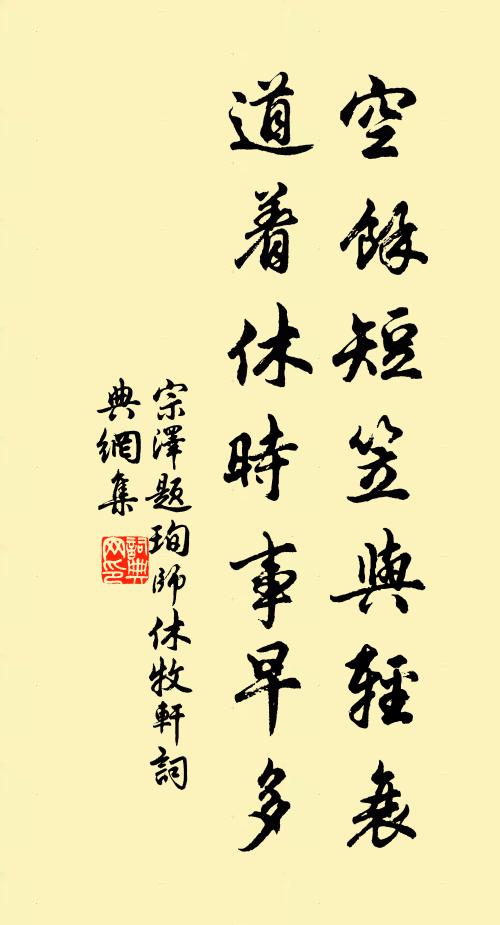 空餘短笠與輕蓑
道着休時事早多
宗澤題珣師休牧軒詞
典網集
詞典網印